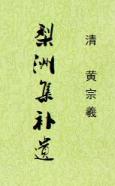 清 黄宗羲
梨洲集补遗